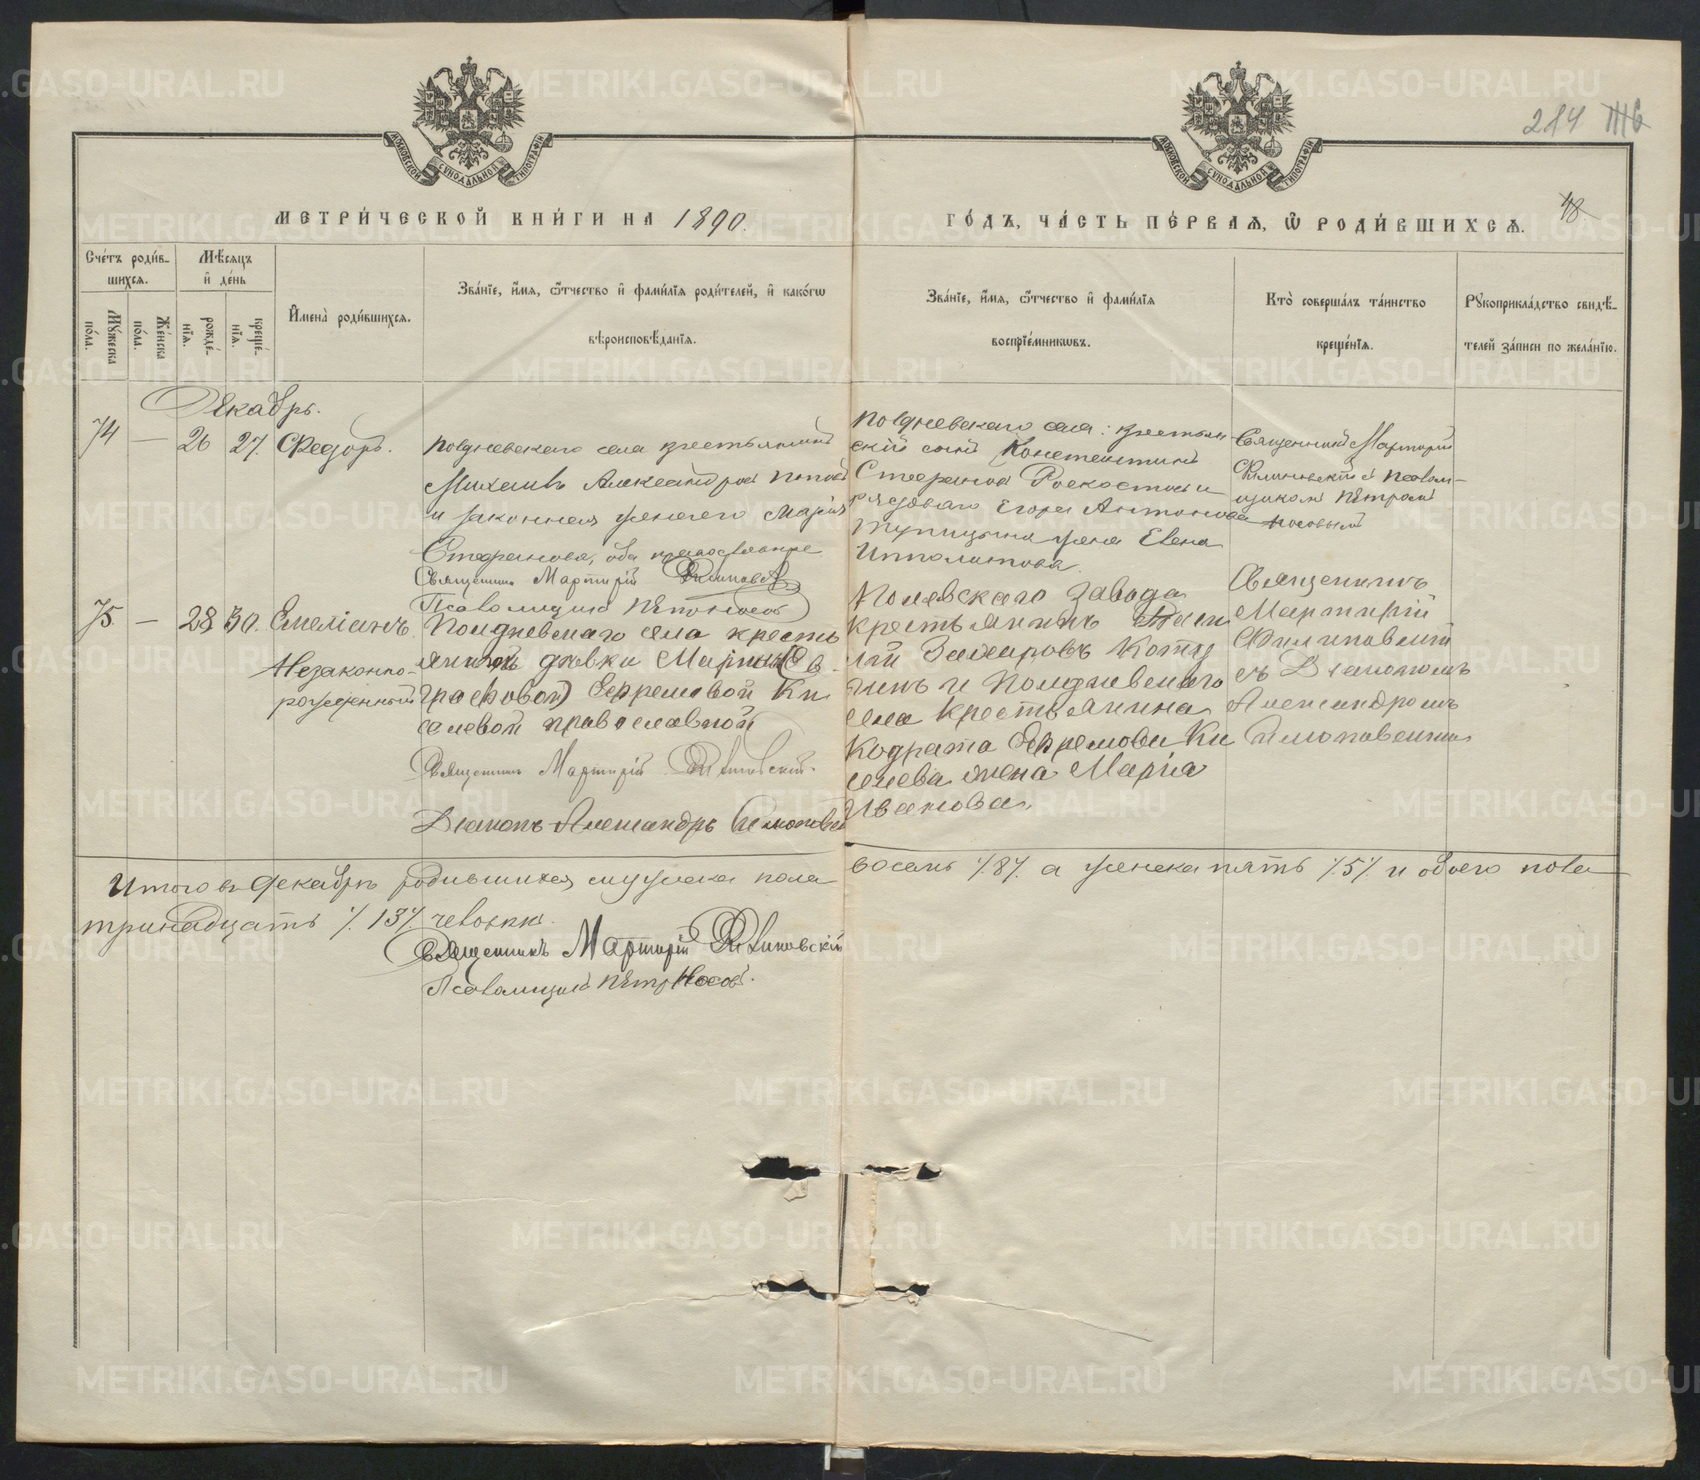 МОСКОВСКОЙ СѴНОДАЛЬНОЙ ТИПОГРАФІИ
МОСКОВСКОЙ СѴНОДАЛЬНОЙ ТИПОГРАФІИ
214
МЕТРИ́ЧЕСКОЙ КНИ́ГИ НА 1890.
ГО́ДЪ, ЧА́СТЬ ПЕ́РВАѦ, Ѡ҆ РОДИ́ВШИХСѦ.
18
Сче́тъ роди́в-
шихсѧ.
Мѣ́сѧцъ
и҆ де́нь
Мꙋ́жеска по́ла.
Же́нска по́ла.
рожде́нїѧ.
креще́нїѧ.
И҆мена̀ роди́вшихсѧ.
Зва́нїе, и҆́мѧ, ѻ҆́тчество и҆ фами́лїѧ роди́телей, и҆ како́гѡ
вѣроисповѣ́данїѧ.
Зва́нїе, и҆́мѧ, ѻ҆́тчество и҆ фами́лїѧ
воспрїе́мникѡвъ.
Кто̀ соверша́лъ та́инство
креще́нїѧ.
Рꙋкоприкла́дство свидѣ́-
телей за́писи по жела́нїю.
Декабрь.
74 — 26 27. Ѳедоръ.
Полдневскаго села крестьянинъ
Михаилъ Александровъ
и законная жена его Марія
Стефанова, оба православные
Священникъ Мартирій Филиповскій
Псаломщикъ Петръ Носовъ
Полдневскаго села: крестьян
скій сынъ Константинъ
Стефановъ и
рядоваго Егора Антонова
жена Елена
Ипполитова.
Священникъ Мартирій
Филиповскій с псалом-
щикомъ Петромъ
Носовымъ
75. — 28 30. Емеліанъ
Незаконно-
рожденный
Полдневскаго села кресть
янской дѣвки Марины (Ев
графовой) Ефремовой Ки
селевой православной
Священникъ Мартирій Филиповскій.
Діаконъ Александръ
Полевскаго завода
крестьянинъ
Захаровъ
и Полдневскаго
села крестьянина
Кодрата Ефремова Ки
селева жена Марія
Иванова.
Священникъ
Мартирій
Филиповскій
съ Діакономъ
Александромъ
Итого въ Декабрѣ родившихся мужеска пола
восемь /8/. а женска пять /5/ и обоего пола
тринадцать /13/. человѣкъ.
Священникъ Мартирій Филиповскій
Псаломщикъ Петръ Носовъ.
METRIKI.GASO-URAL.RU